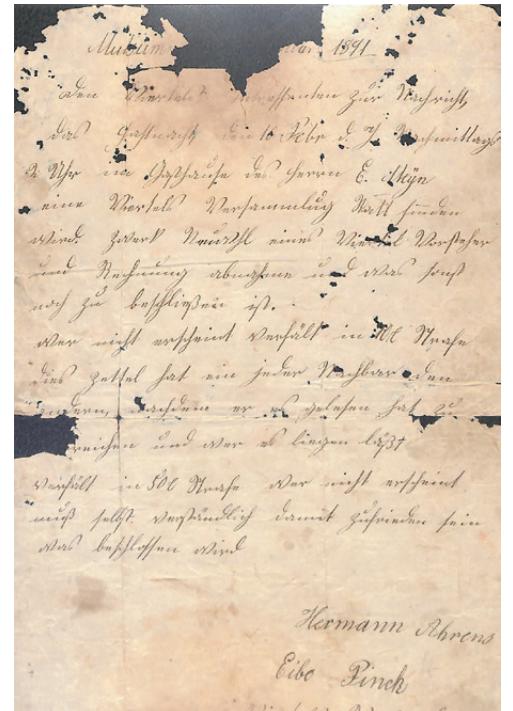 1891
Den Viertels Interessenten zur Nachricht,
das Fastnacht, den 10 Febr d. J. Nachmittags
2 Uhr im Gasthause des Herrn E.
eine Viertels Versammlug Statt finden
wird. Zwerk Neuwahl eines Viertel Vorsteher
und Rechnung abnahme und was sonst
noch zu beschließen ist.
wer nicht erscheint verfält in Strafe
dies Zettel hat ein jeder Nachbar den
andern, Nachdem er es gelesen hat zu
reichen und wer es liegen läßt
verfält in 50 Strafe wer nicht erscheint
muß selbst verständlich damit zufrieden sein
was beschlossen wird
Hermann Ahrens
Eibo Pinck